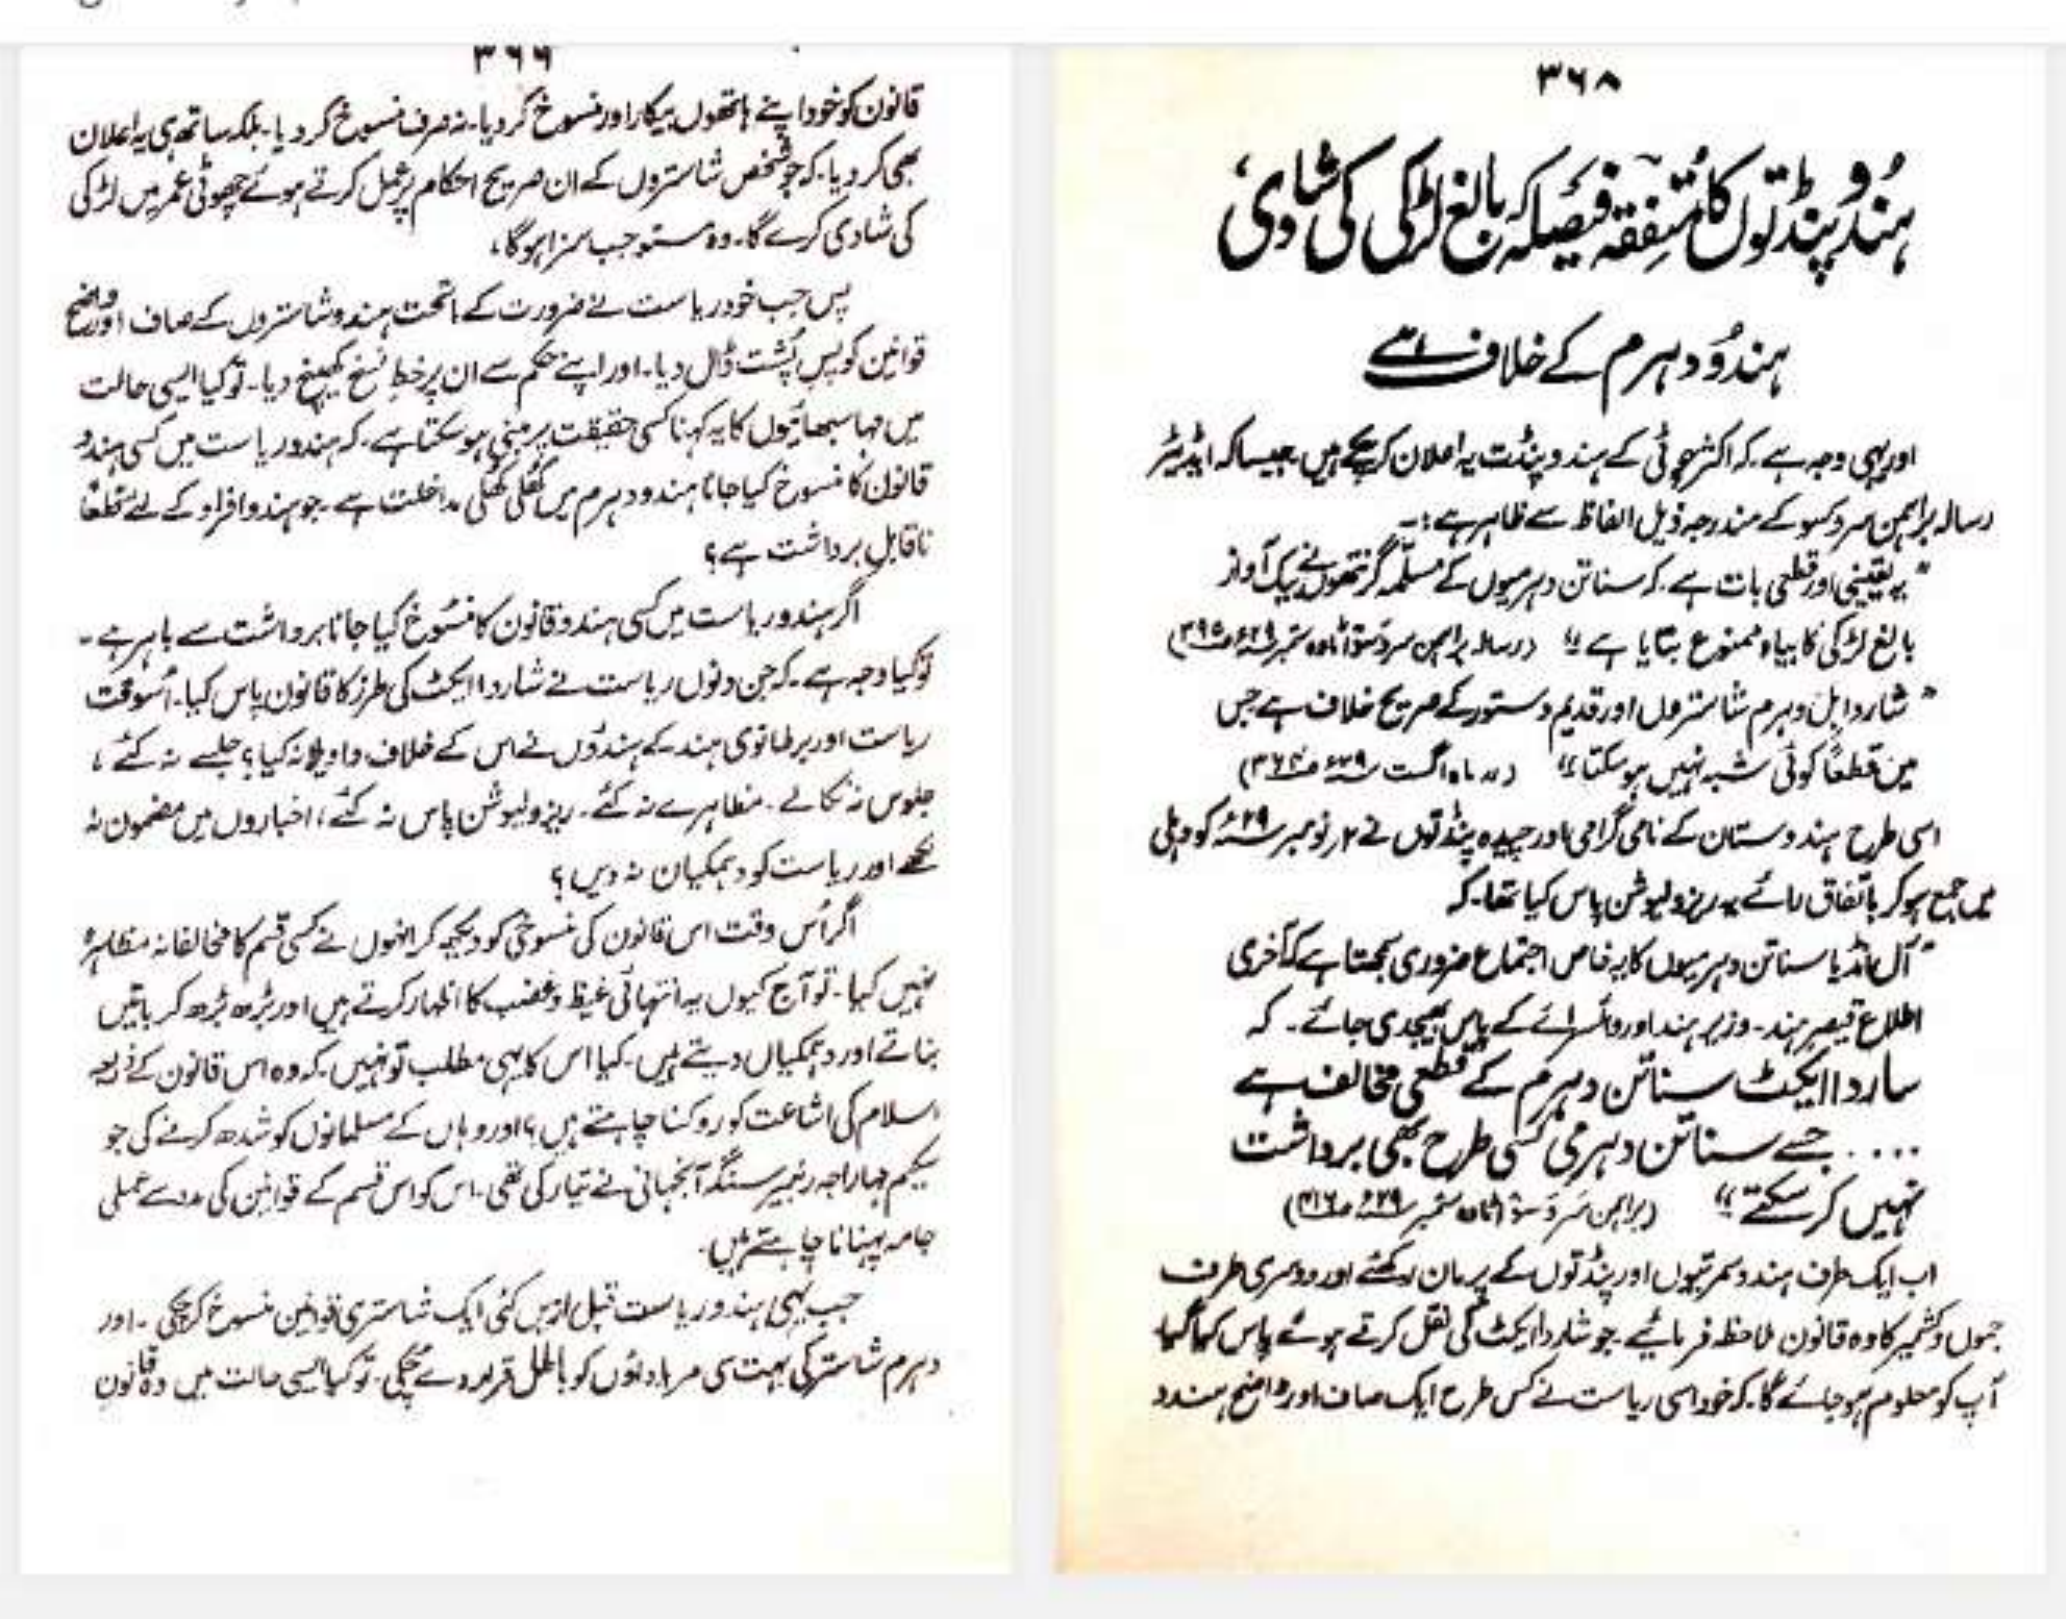 ۳۶۸
ہندو پنڈتوں کا متفقہ فیصلہ کہ بالغ لڑکی کی شادی
ہندو دہرم کے خلاف ہے
اور یہی وجہ ہے۔ کہ اکثر چوٹی کے ہندو پنڈت یہ اعلان کر چکے ہیں۔ جیسا کہ ایڈیٹر
رسالہ براہمن سروسو کے مندرجہ ذیل الفاظ سے ظاہر ہے:۔
" یہ یقینی اور قطعی بات ہے۔ کہ سناتن دہرمیوں کے مسلمہ گرنتھوں نے یک آواز
بالغ لڑکی کا بیاہ ممنوع بتایا ہے" (رسالہ براہمن سروسو اٹاوہ ستمبر ۲۹ء
" شاردا بل دہرم شاستروں اور قدیم دستور کے صریح خلاف ہے جس
میں قطعاً کوئی شبہ نہیں ہو سکتا" ( ماہ اگست ۲۹ء
اسی طرح ہندوستان کے نامی گرامی اور چیدہ پنڈتوں نے ۲ر نومبر ۲۹ء کو دہلی
میں جمع ہو کر باتفاق رائے یہ ریزولیوشن پاس کیا تھا۔ کہ
" آل انڈیا سناتن دہرمیوں کا یہ خاص اجتماع ضروری سمجھتا ہے کہ آخری
اطلاع قیصر ہند۔ وزیر ہند اور وائسرائے کے پاس بھیجدی جائے۔ کہ
ساردا ایکٹ سناتن دہرم کے قطعی مخالف ہے
.... جسے سناتن دہرمی کسی طرح بھی برداشت
نہیں کر سکتے" (براہمن سروسو اٹاوہ ستمبر ۲۹ء
اب ایک طرف ہندو سمرتیوں اور پنڈتوں کے پرمان رکھئے اور دوسری طرف
جموں و کشمیر کا وہ قانون ملاحظہ فرمائیے۔ جو شاردا ایکٹ کی نقل کرتے ہوئے پاس کیا گیا
آپ کو معلوم ہو جائے گا۔ کہ خود اسی ریاست نے کس طرح ایک صاف اور واضح ہندو
۳۶۹
قانون کو خود اپنے ہاتھوں بیکار اور منسوخ کر دیا۔ نہ صرف منسوخ کر دیا۔ بلکہ ساتھ ہی یہ اعلان
بھی کر دیا۔ کہ جو شخص شاستروں کے ان صریح احکام پر عمل کرتے ہوئے چھوٹی عمر میں لڑکی
کی شادی کرے گا۔ وہ مستوجب سزا ہو گا۔
پس جب خود ریاست نے ضرورت کے ماتحت ہندو شاستروں کے صاف اور واضح
قوانین کو پس پشت ڈال دیا۔ اور اپنے حکم سے ان پر خط نسخ کھینچ دیا۔ تو کیا ایسی حالت
میں مہاسبھائیوں کا یہ کہنا کسی حقیقت پر مبنی ہو سکتا ہے۔ کہ ہندو ریاست میں کسی ہندو
قانون کا منسوخ کیا جانا ہندو دہرم میں کھلی کھلی مداخلت ہے۔ جو ہندو افراد کے لئے قطعاً
ناقابل برداشت ہے؟
اگر ہندو ریاست میں کسی ہندو قانون کا منسوخ کیا جانا برداشت سے باہر ہے۔
تو کیا وجہ ہے۔ کہ جن دنوں ریاست نے شاردا ایکٹ کی طرز کا قانون پاس کیا۔ اسوقت
ریاست اور برطانوی ہند کے ہندوؤں نے اس کے خلاف واویلا نہ کیا؟ جلسے نہ کئے،
جلوس نہ نکالے۔ مظاہرے نہ کئے۔ ریزولیوشن پاس نہ کئے، اخباروں میں مضمون نہ
لکھے اور ریاست کو دہمکیاں نہ دیں؟
اگر اُس وقت اس قانون کی منسوخی کو دیکھ کر انہوں نے کسی قسم کا مخالفانہ مظاہرہ
نہیں کیا۔ تو آج کیوں یہ انتہائی غیظ و غضب کا اظہار کرتے ہیں اور بڑھ بڑھ کر باتیں
بناتے اور دہمکیاں دیتے ہیں۔ کیا اس کا یہی مطلب تو نہیں۔ کہ وہ اس قانون کے ذریعہ
اسلام کی اشاعت کو روکنا چاہتے ہیں؟ اور وہاں کے مسلمانوں کو شدھ کرنے کی جو
سکیم مہاراجہ رنبیر سنگھ آنجہانی نے تیار کی تھی۔ اس کو اس قسم کے قوانین کی مدد سے عملی
جامہ پہنانا چاہتے ہیں۔
جب یہی ہندو ریاست قبل ازیں کئی ایک شاستری قوانین منسوخ کر چکی۔ اور
دہرم شاستر کی بہت سی مریاداؤں کو باطل قرار دے چکی۔ تو کیا ایسی حالت میں وہ قانون